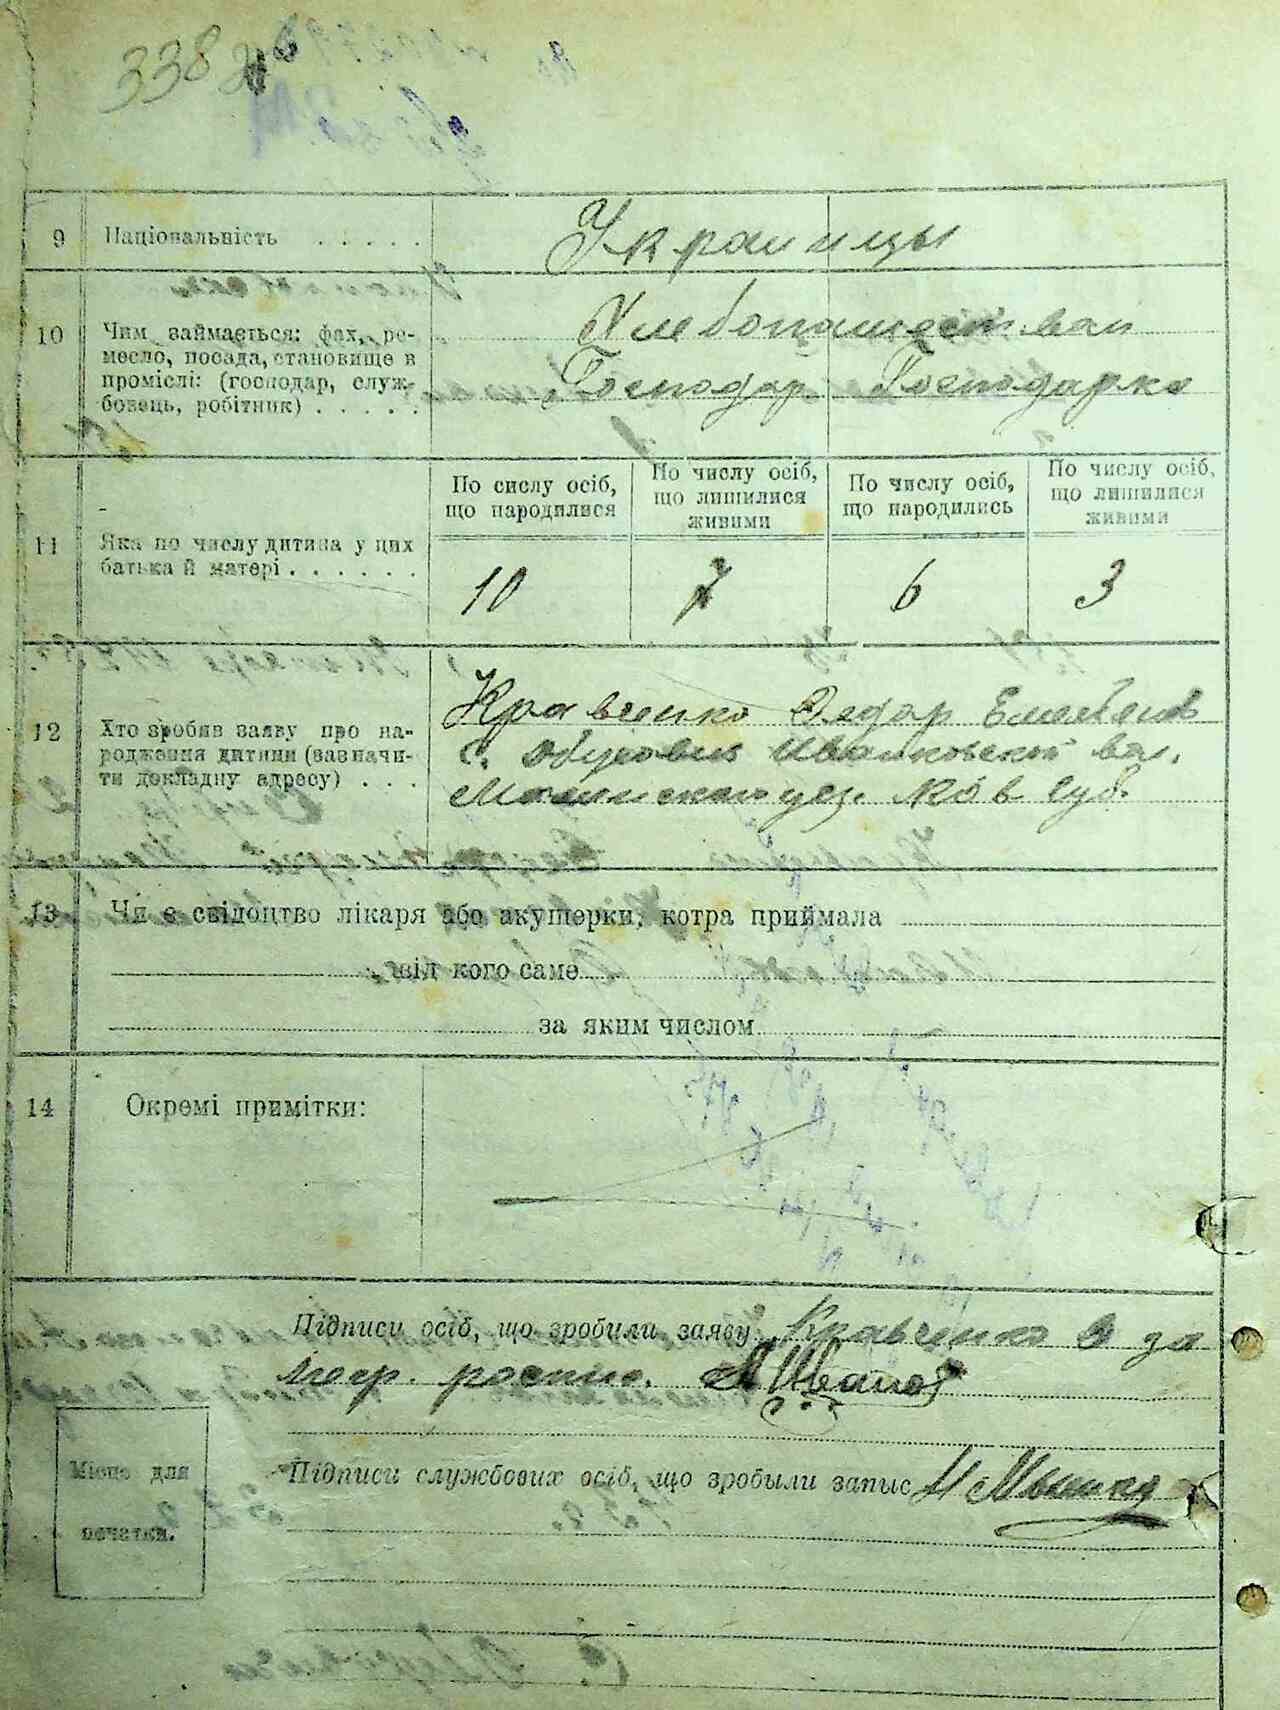 338
9 Національність . . . . . Украинцы
10 Чим займається: фах, ре-
месло, посада, становище в
проміслі: (господар, служ-
бовець, робітник) . . . . .
Хлебопашеством
Господар Господарка
По сислу осіб,
що народилися
По числу осіб,
що лишилися
живими
По числу осіб,
що народились
По числу осіб,
що лишилися
живими
11 Яка по числу дитина у цих
батька й матері . . . . . .
10 7 6 3
12 Хто зробив заяву про на-
родження дитини (зазначи-
ти докладну адресу) . . .
Кравченко Федор
с. Обуховичи Иванковской вол.
уез. Киев губ.
13 Чи є свідоцтво лікаря або акушерки, котра приймала
від кого саме
за яким числом
14 Окремі примітки:
Підписи осіб, що зробили заяву Кравченко а за
негр. роспис.
Підписи службових осіб, що зробыли запис
Місце для
печатки.